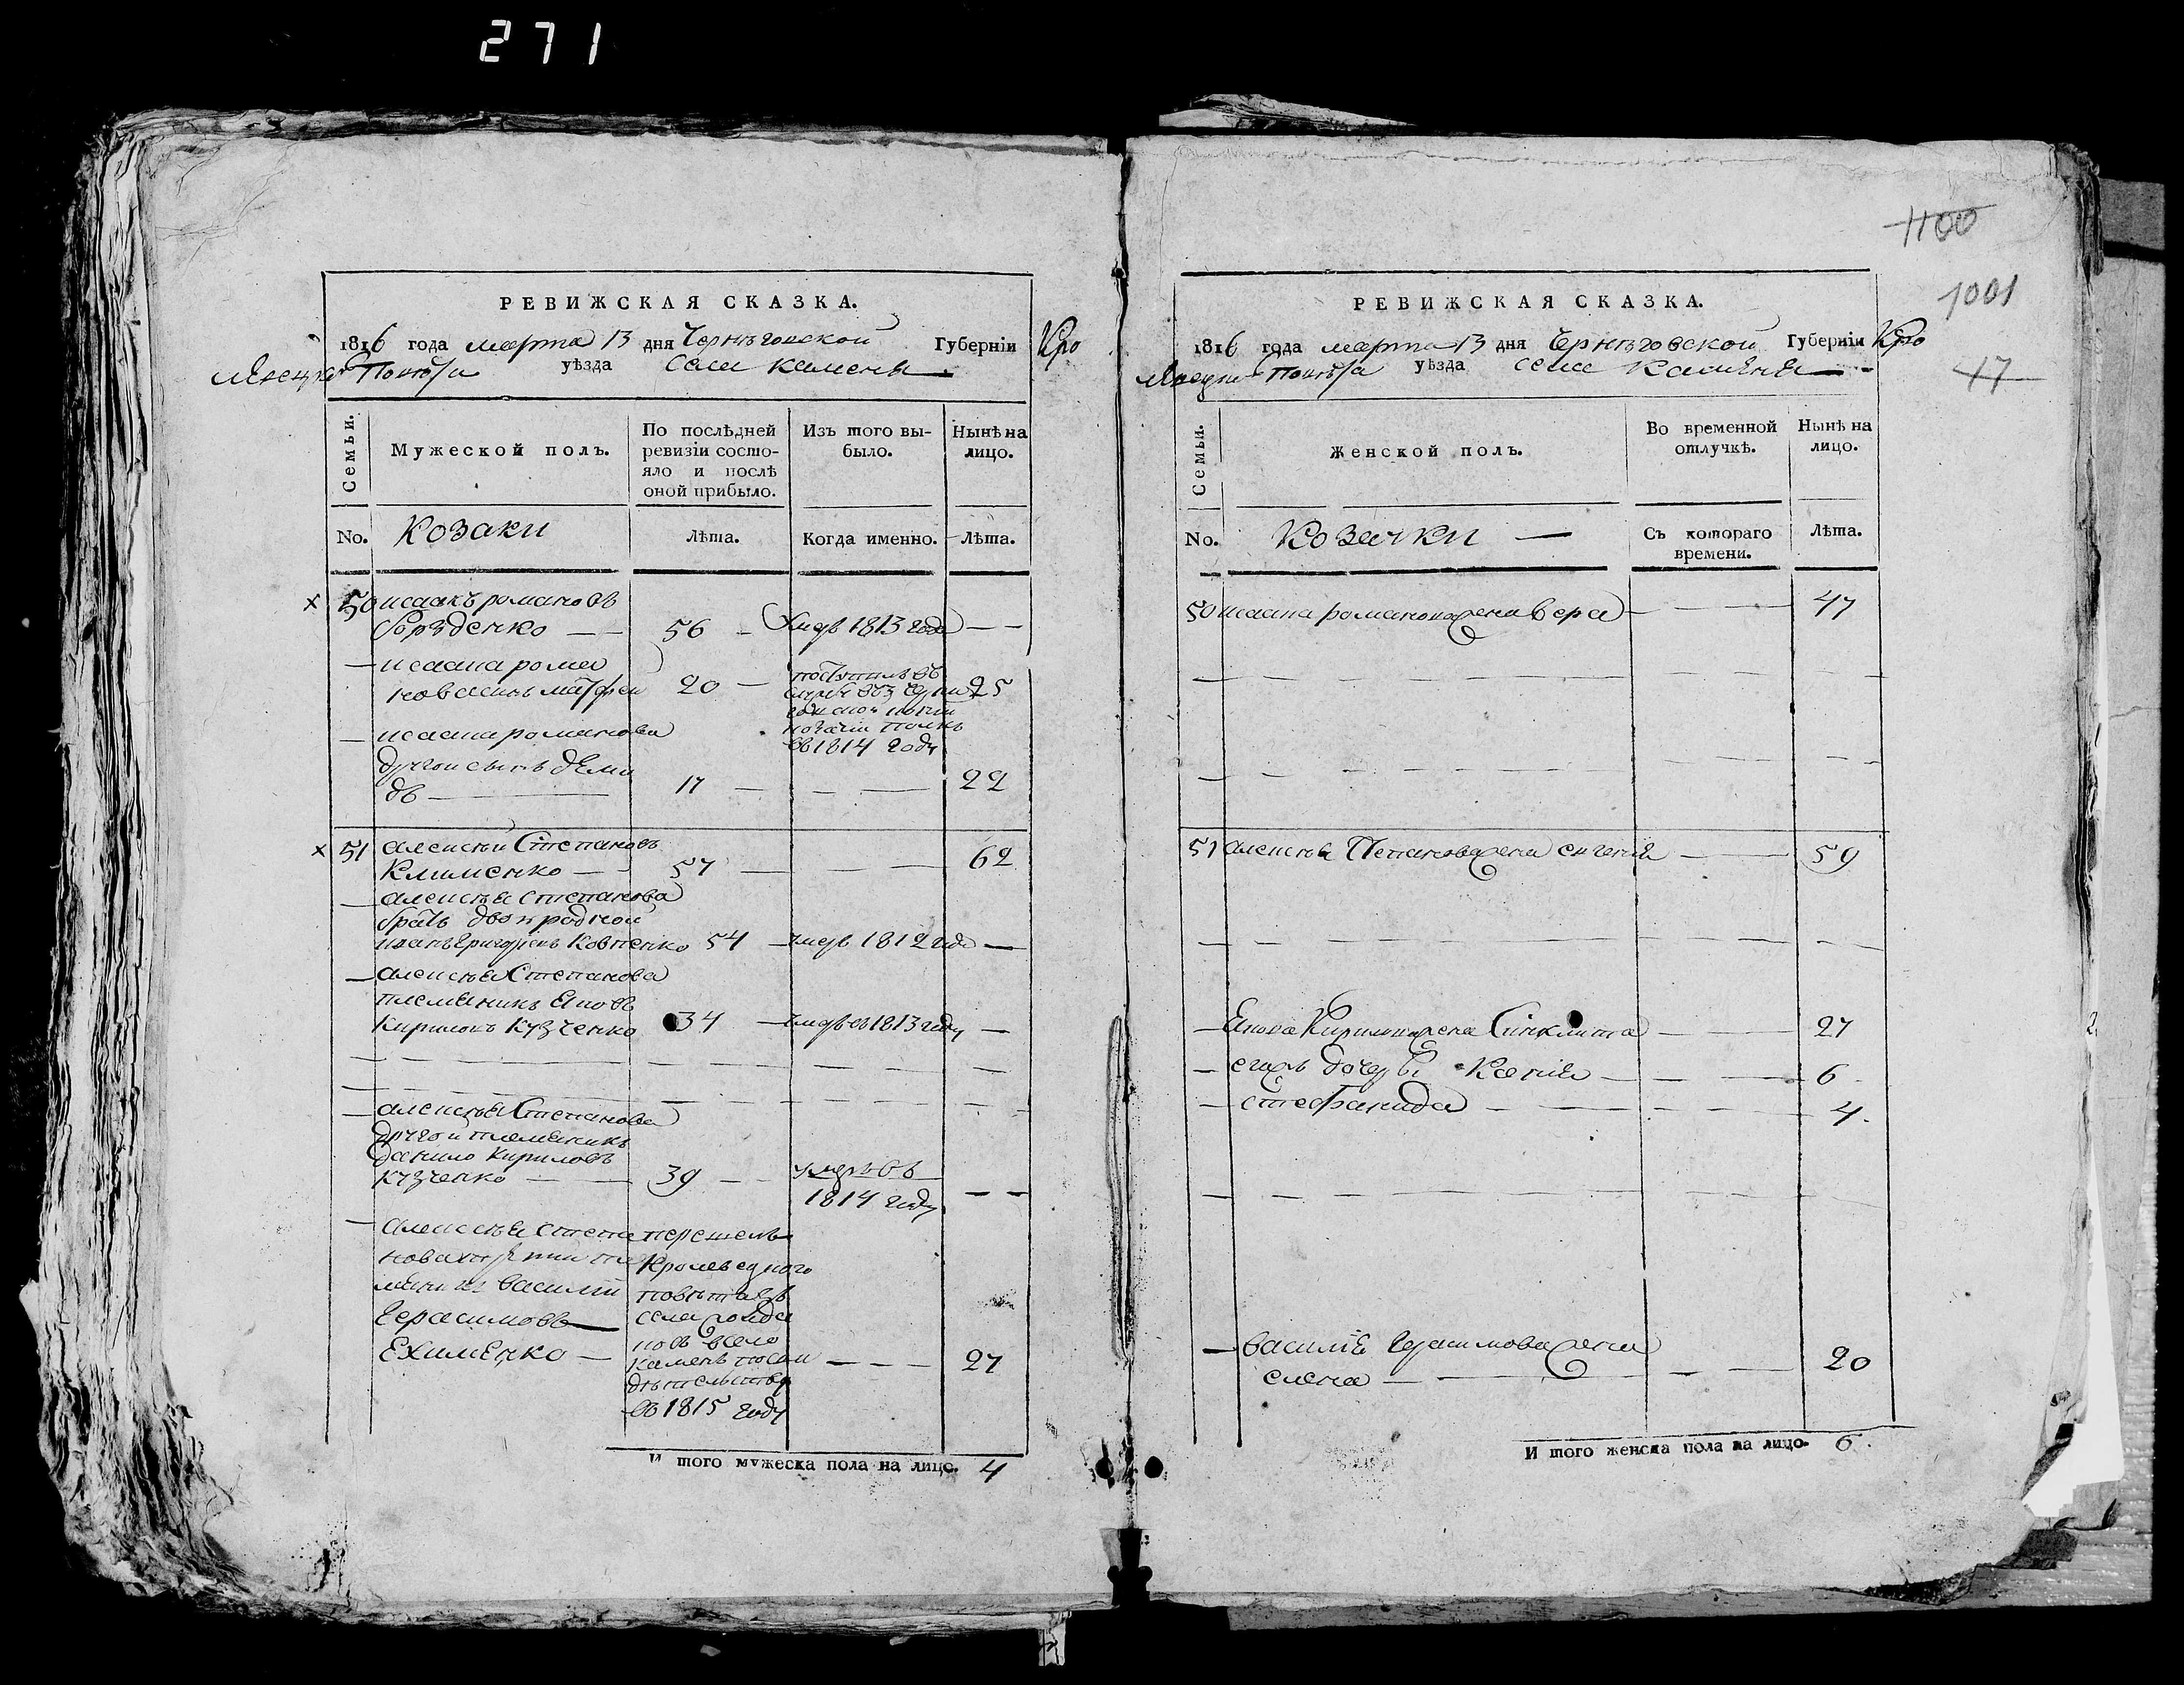 271
РЕВИЖСКАЯ СКАЗКА.
1816 года марта 13 дня Черниговской Губерніи Кро
левецкаго Повѣта уѣзда села Каменя
Семьи.
Мужеской полъ.
По послѣдней
ревизіи состо-
яло и послѣ
оной прибыло.
Изъ того вы-
было.
Нынѣ на
лицо.
No. Козаки
Лѣта. Когда именно. Лѣта.
50 исаакъ романовъ
56 1813 года
исаака рома
20 поступилъ въ 25
козачій полкъ
въ 1814 году
исаака романова
другои сынъ деми
дъ 17 22
51 алексѣй Степановъ
Клименко 57 62
алексѣя степанова
братъ двоюродной
иванъ 54 умре 1812 года
алексѣя Степанова
племяникъ Яковъ
Кириловъ Кузченко 34 умре въ 1813 году
алексѣя Степанова
другой племяникъ
данило Кириловъ
Кузченко 39 умре въ
1814 году
алексѣя степа
нова третій пле
мяникъ василій
Герасимовъ
Ехименко 27
перешелъ
Кролевецкого
повѣта изъ
села
въ село
камень
въ 1815 году
И того мужеска пола на лицо. 4
1100
1001
47
РЕВИЖСКАЯ СКАЗКА.
1816 года марта 13 дня Черниговской Губерніи Кро
левецкаго Повѣта уѣзда села Каменя
Семьи.
Женской полъ.
Во временной
отлучкѣ.
Нынѣ на
лицо.
No. Козачки
Съ котораго
времени.
Лѣта.
50 исаака романова жена вера 47
51 алексѣя Степанова жена 59
Якова Кирилова жена Синклита 27
егожъ дочери Ксенія 6
стефанида 4
василія Герасимова жена
елена 20
И того женска пола на лицо. 6.